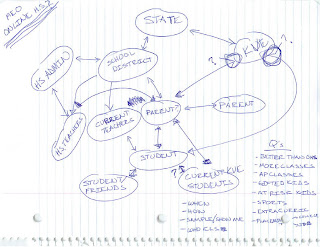 ONLINE H.S.?
STATE
KVE
?
?
HS ADMIN
SCHOOL
DISTRICT
HS TEACHERS
CURRENT
TEACHERS
PARENTS
PARENT
STUDENT
STUDENT
FRIENDS
?
CURRENT KVE
STUDENTS
- WHEN
- HOW
- SAMPLE/SHOW ME
- WHO ELSE
Qs
- BETTER THAN
- MORE CLASSES
- AP CLASSES
- GIFTED KIDS
- AT RISK KIDS
- SPORTS
- EXTRACURRIC